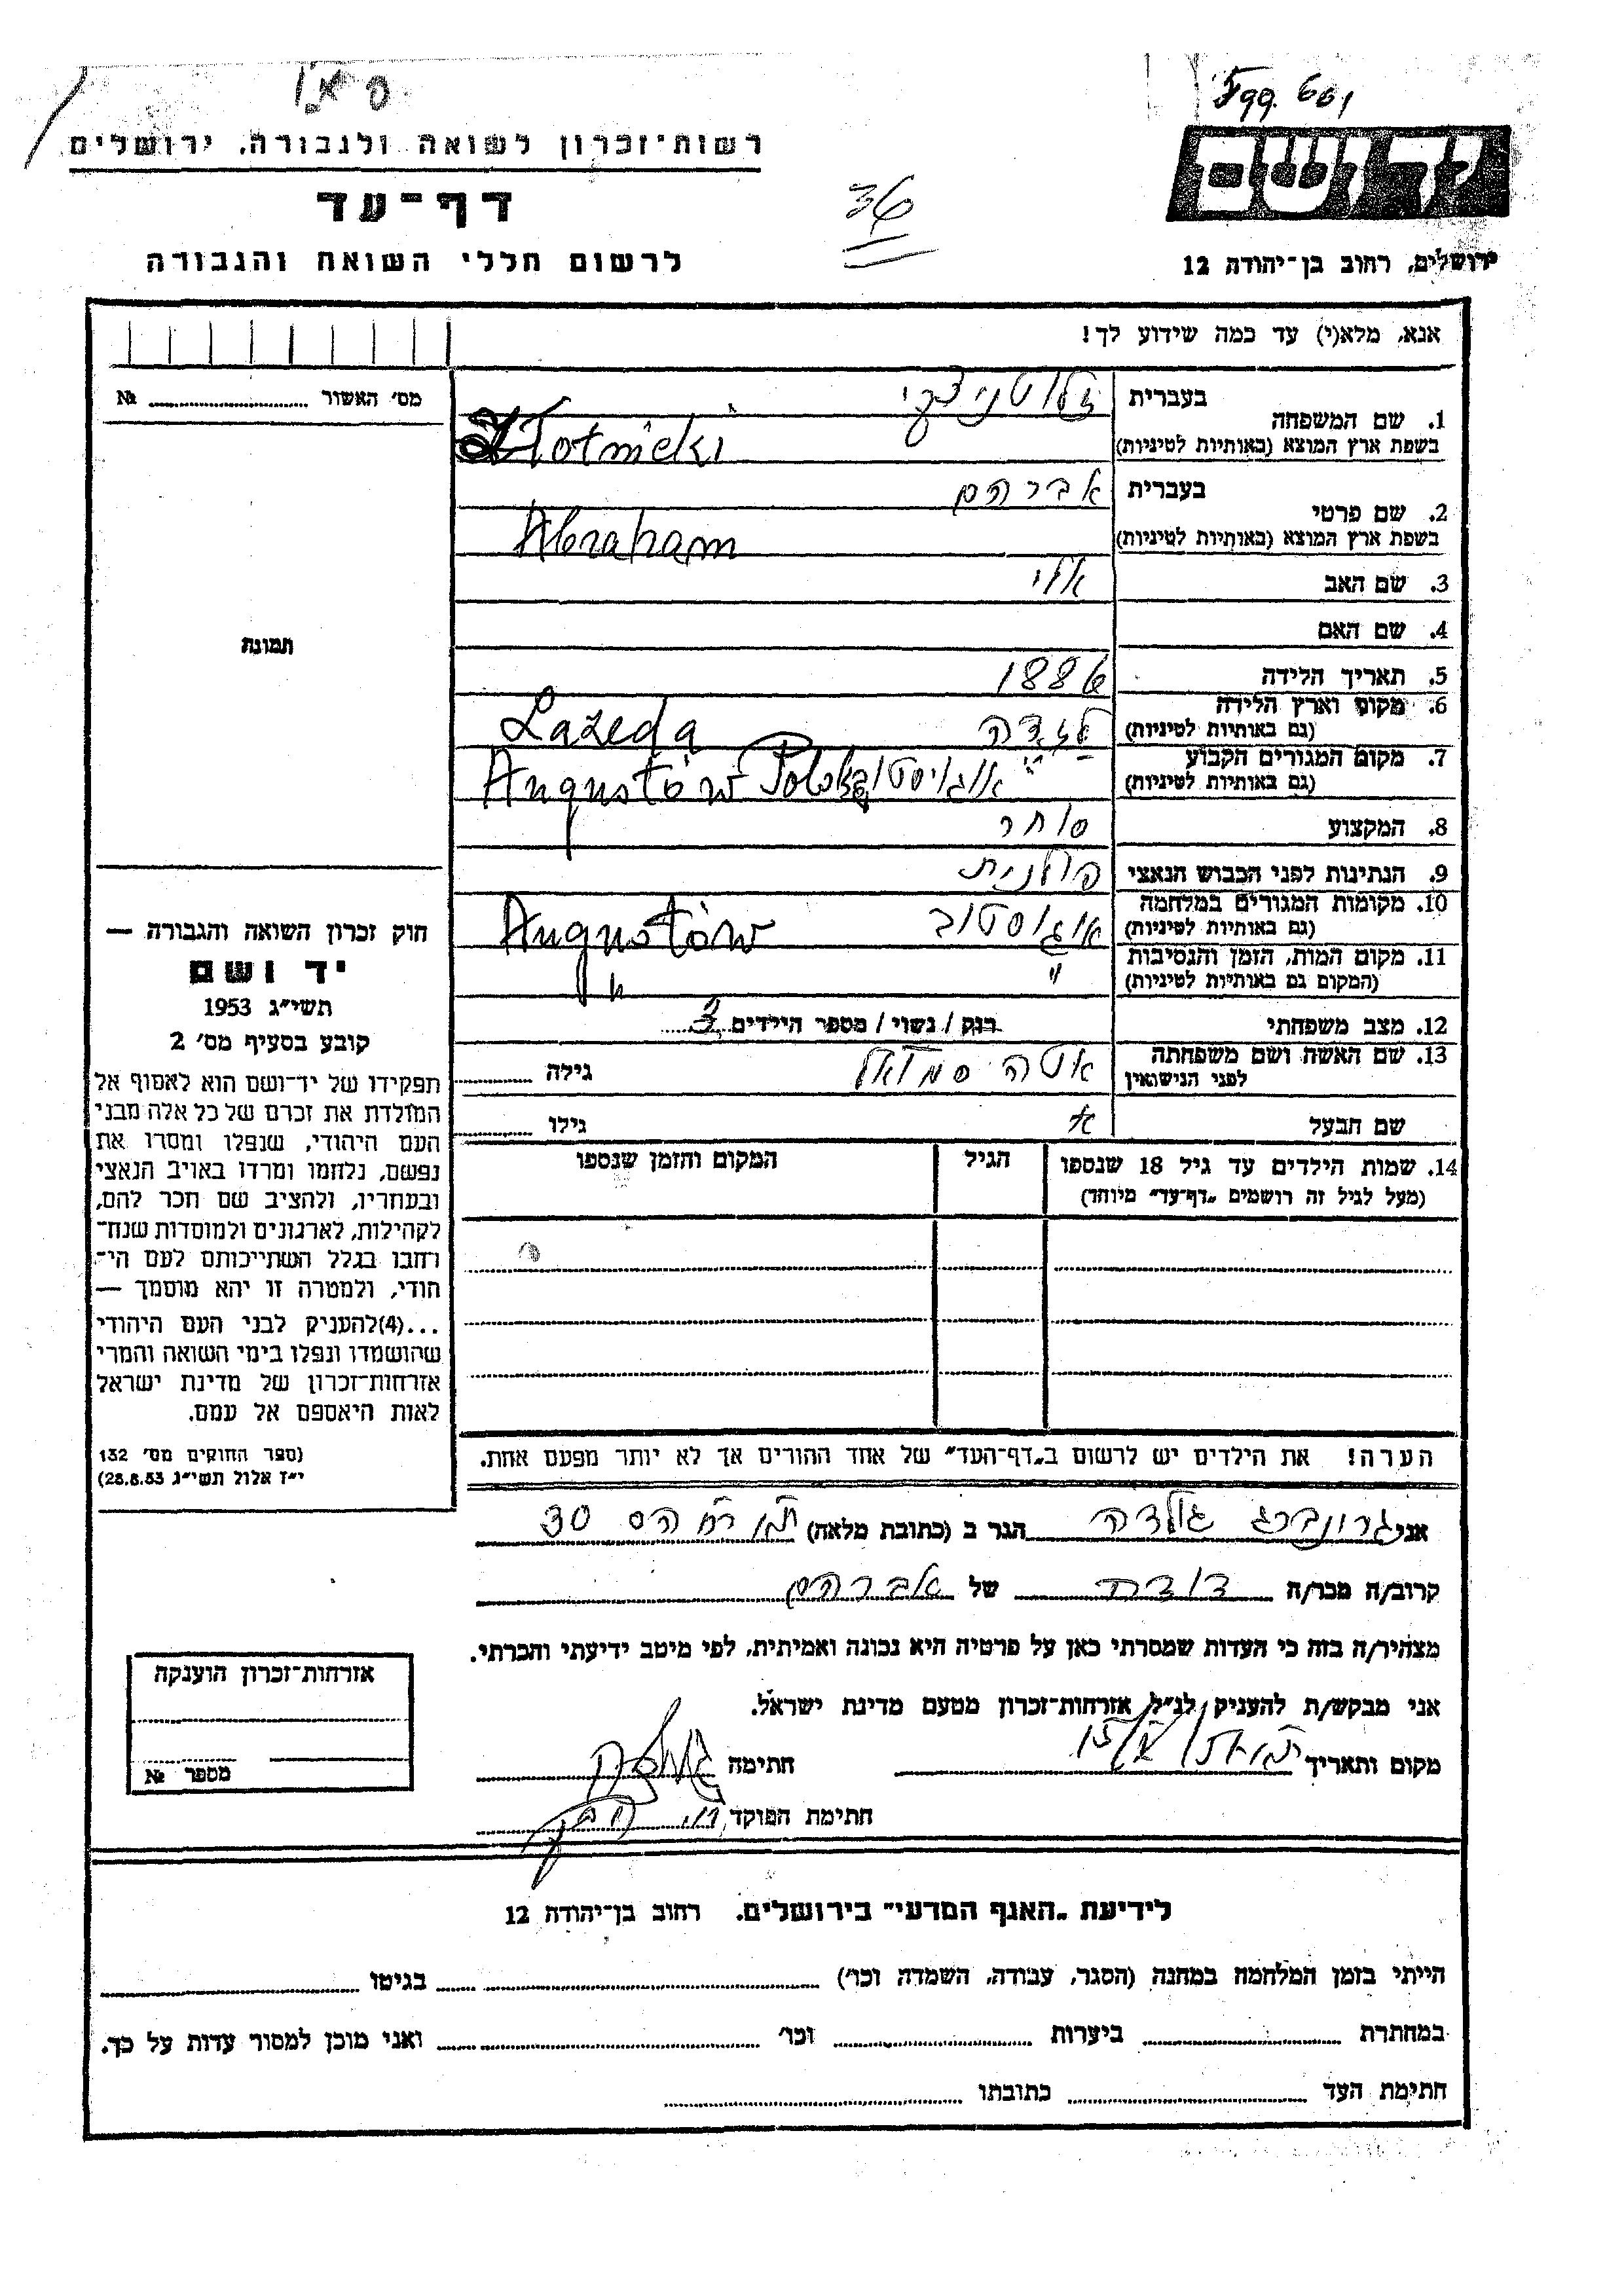 רשות־זכרון לשואה ולגבורה, ירושלים
דף־עד
לרשום חללי השואה והגבורה
36
ידושם
ירושלים, רחוב בן־יהודה 12
אנא, מלא(י) עד כמה שידוע לך!
מס׳ האשור ........ №
תמונה
1. שם המשפחה
בעברית זלוטניצקי
בשפת ארץ המוצא (באותיות לטיניות) Złotnicki
2. שם פרטי
בעברית אברהם
בשפת ארץ המוצא (באותיות לטיניות) Abraham
3. שם האב אלי
4. שם האם
5. תאריך הלידה 1886
6. מקום וארץ הלידה
(גם באותיות לטיניות) לזדה Lazeda
7. מקום המגורים הקבוע
(גם באותיות לטיניות) Augustów Polska
8. המקצוע סוחר
9. הנתינות לפני הכבוש הנאצי פולנית
10. מקומות המגורים במלחמה
(גם באותיות לטיניות) אוגוסטוב Augustów
11. מקום המות, הזמן והנסיבות
(המקום גם באותיות לטיניות) " "
12. מצב משפחתי רווק / נשוי / מספר הילדים 3
13. שם האשה ושם משפחתה
לפני הנישואין אטה גילה ........
שם הבעל גילו ........
14. שמות הילדים עד גיל 18 שנספו הגיל המקום והזמן שנספו
(מעל לגיל זה רושמים „דף־עד״ מיוחד)
הערה! את הילדים יש לרשום ב„דף־העד״ של אחד ההורים אך לא יותר מפעם אחת.
חוק זכרון השואה והגבורה —
יד ושם
תשי״ג 1953
קובע בסעיף מס׳ 2
תפקידו של יד־ושם הוא לאסוף אל
המולדת את זכרם של כל אלה מבני
העם היהודי, שנפלו ומסרו את
נפשם, נלחמו ומרדו באויב הנאצי
ובעוזריו, ולהציב שם וזכר להם,
לקהילות, לארגונים ולמוסדות שנח־
רבו בגלל השתייכותם לעם הי־
הודי, ולמטרה זו יהא מוסמך —
...(4) להעניק לבני העם היהודי
שהושמדו ונפלו בימי השואה והמרי
אזרחות־זכרון של מדינת ישראל
לאות היאספם אל עמם.
(ספר החוקים מס׳ 132
י״ז אלול תשי״ג 28.8.53)
אני גרונברג גולדה הגר ב (כתובת מלאה) 30
קרוב/ה מכר/ה דודה של אברהם
מצהיר/ה בזה כי העדות שמסרתי כאן על פרטיה היא נכונה ואמיתית, לפי מיטב ידיעתי והכרתי.
אני מבקש/ת להעניק לנ״ל אזרחות־זכרון מטעם מדינת ישראל.
מקום ותאריך ........ חתימה ........
חתימת הפוקד ........
אזרחות־זכרון הוענקה
מספר №
לידיעת „האגף המדעי״ בירושלים, רחוב בן־יהודה 12
הייתי בזמן המלחמה במחנה (הסגר, עבודה, השמדה וכו׳) ........ בגיטו ........
במחתרת ........ ביערות ........ וכו׳ ........ ואני מוכן למסור עדות על כך.
חתימת העד ........ כתובתו ........